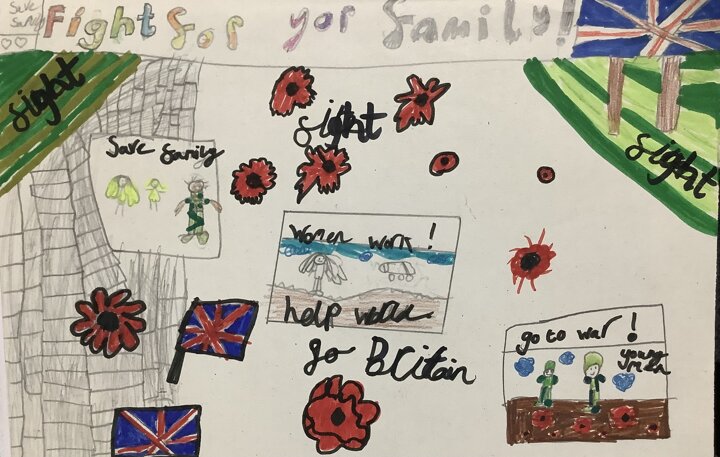 Save
family
Fight for yor family!
fight
fight
fight
Save family
women work!
help
go Britain
go to war!
young
men